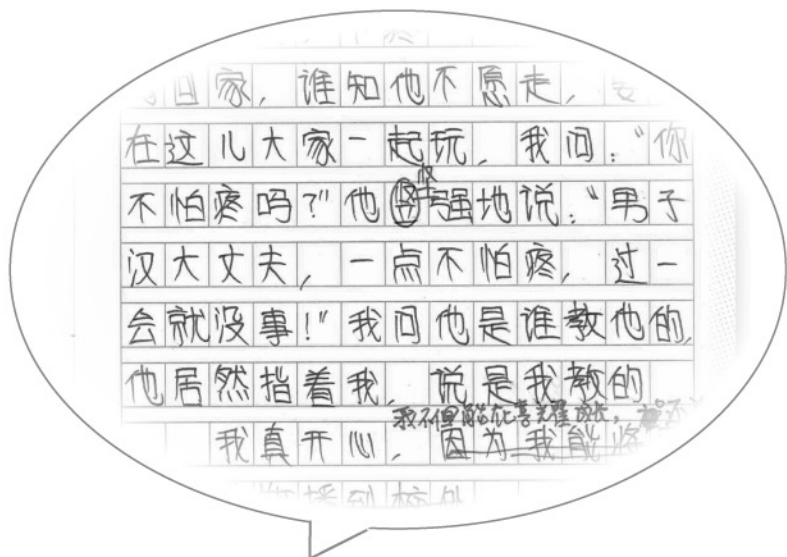 回家，谁知他不愿走，要
在这儿大家一起玩，我问："你
坚
不怕疼吗？"他强地说："男子
汉大丈夫，一点不怕疼，过一
会就没事！"我问他是谁教他的，
他居然指着我，说是我教的
我不但能在喜耀成长，还
我真开心，因为我能将
播到校外